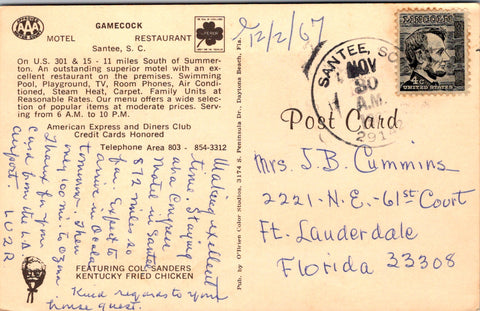 AAA
GAMECOCK
MOTEL RESTAURANT
Santee, S. C.
On U.S. 301 & 15 - 11 miles South of Summer-
ton. An outstanding superior motel with an ex-
cellent restaurant on the premises. Swimming
Pool, Playground, TV, Room Phones, Air Condi-
tioned, Steam Heat, Carpet. Family Units at
Reasonable Rates. Our menu offers a wide selec-
tion of popular items at moderate prices. Serv-
ing from 6 A.M. to 10 P.M.
American Express and Diners Club
Credit Cards Honored
Telephone Area 803 - 854-3312
FEATURING COL. SANDERS
KENTUCKY FRIED CHICKEN
Making excellent
time. Staying
at a Congress
Motel in Santee
872 miles so
far. Expect to
arrive in Ocala
tomorrow. Then
only 100 mi. to
Thanks for your
card from the L.A.
airport.
LU2R
Kind regards to your
house guest.
Pub. by O'Brien Color Studios, 3174 S. Peninsula Dr., Daytona Beach, Fla.
12/2/67
SANTEE, SC
NOV
30
A.M.
LINCOLN
4c
UNITED STATES
Post Card
Mrs. J.B. Cummins
2221-N.E.-61st Court
Ft. Lauderdale
Florida 33308